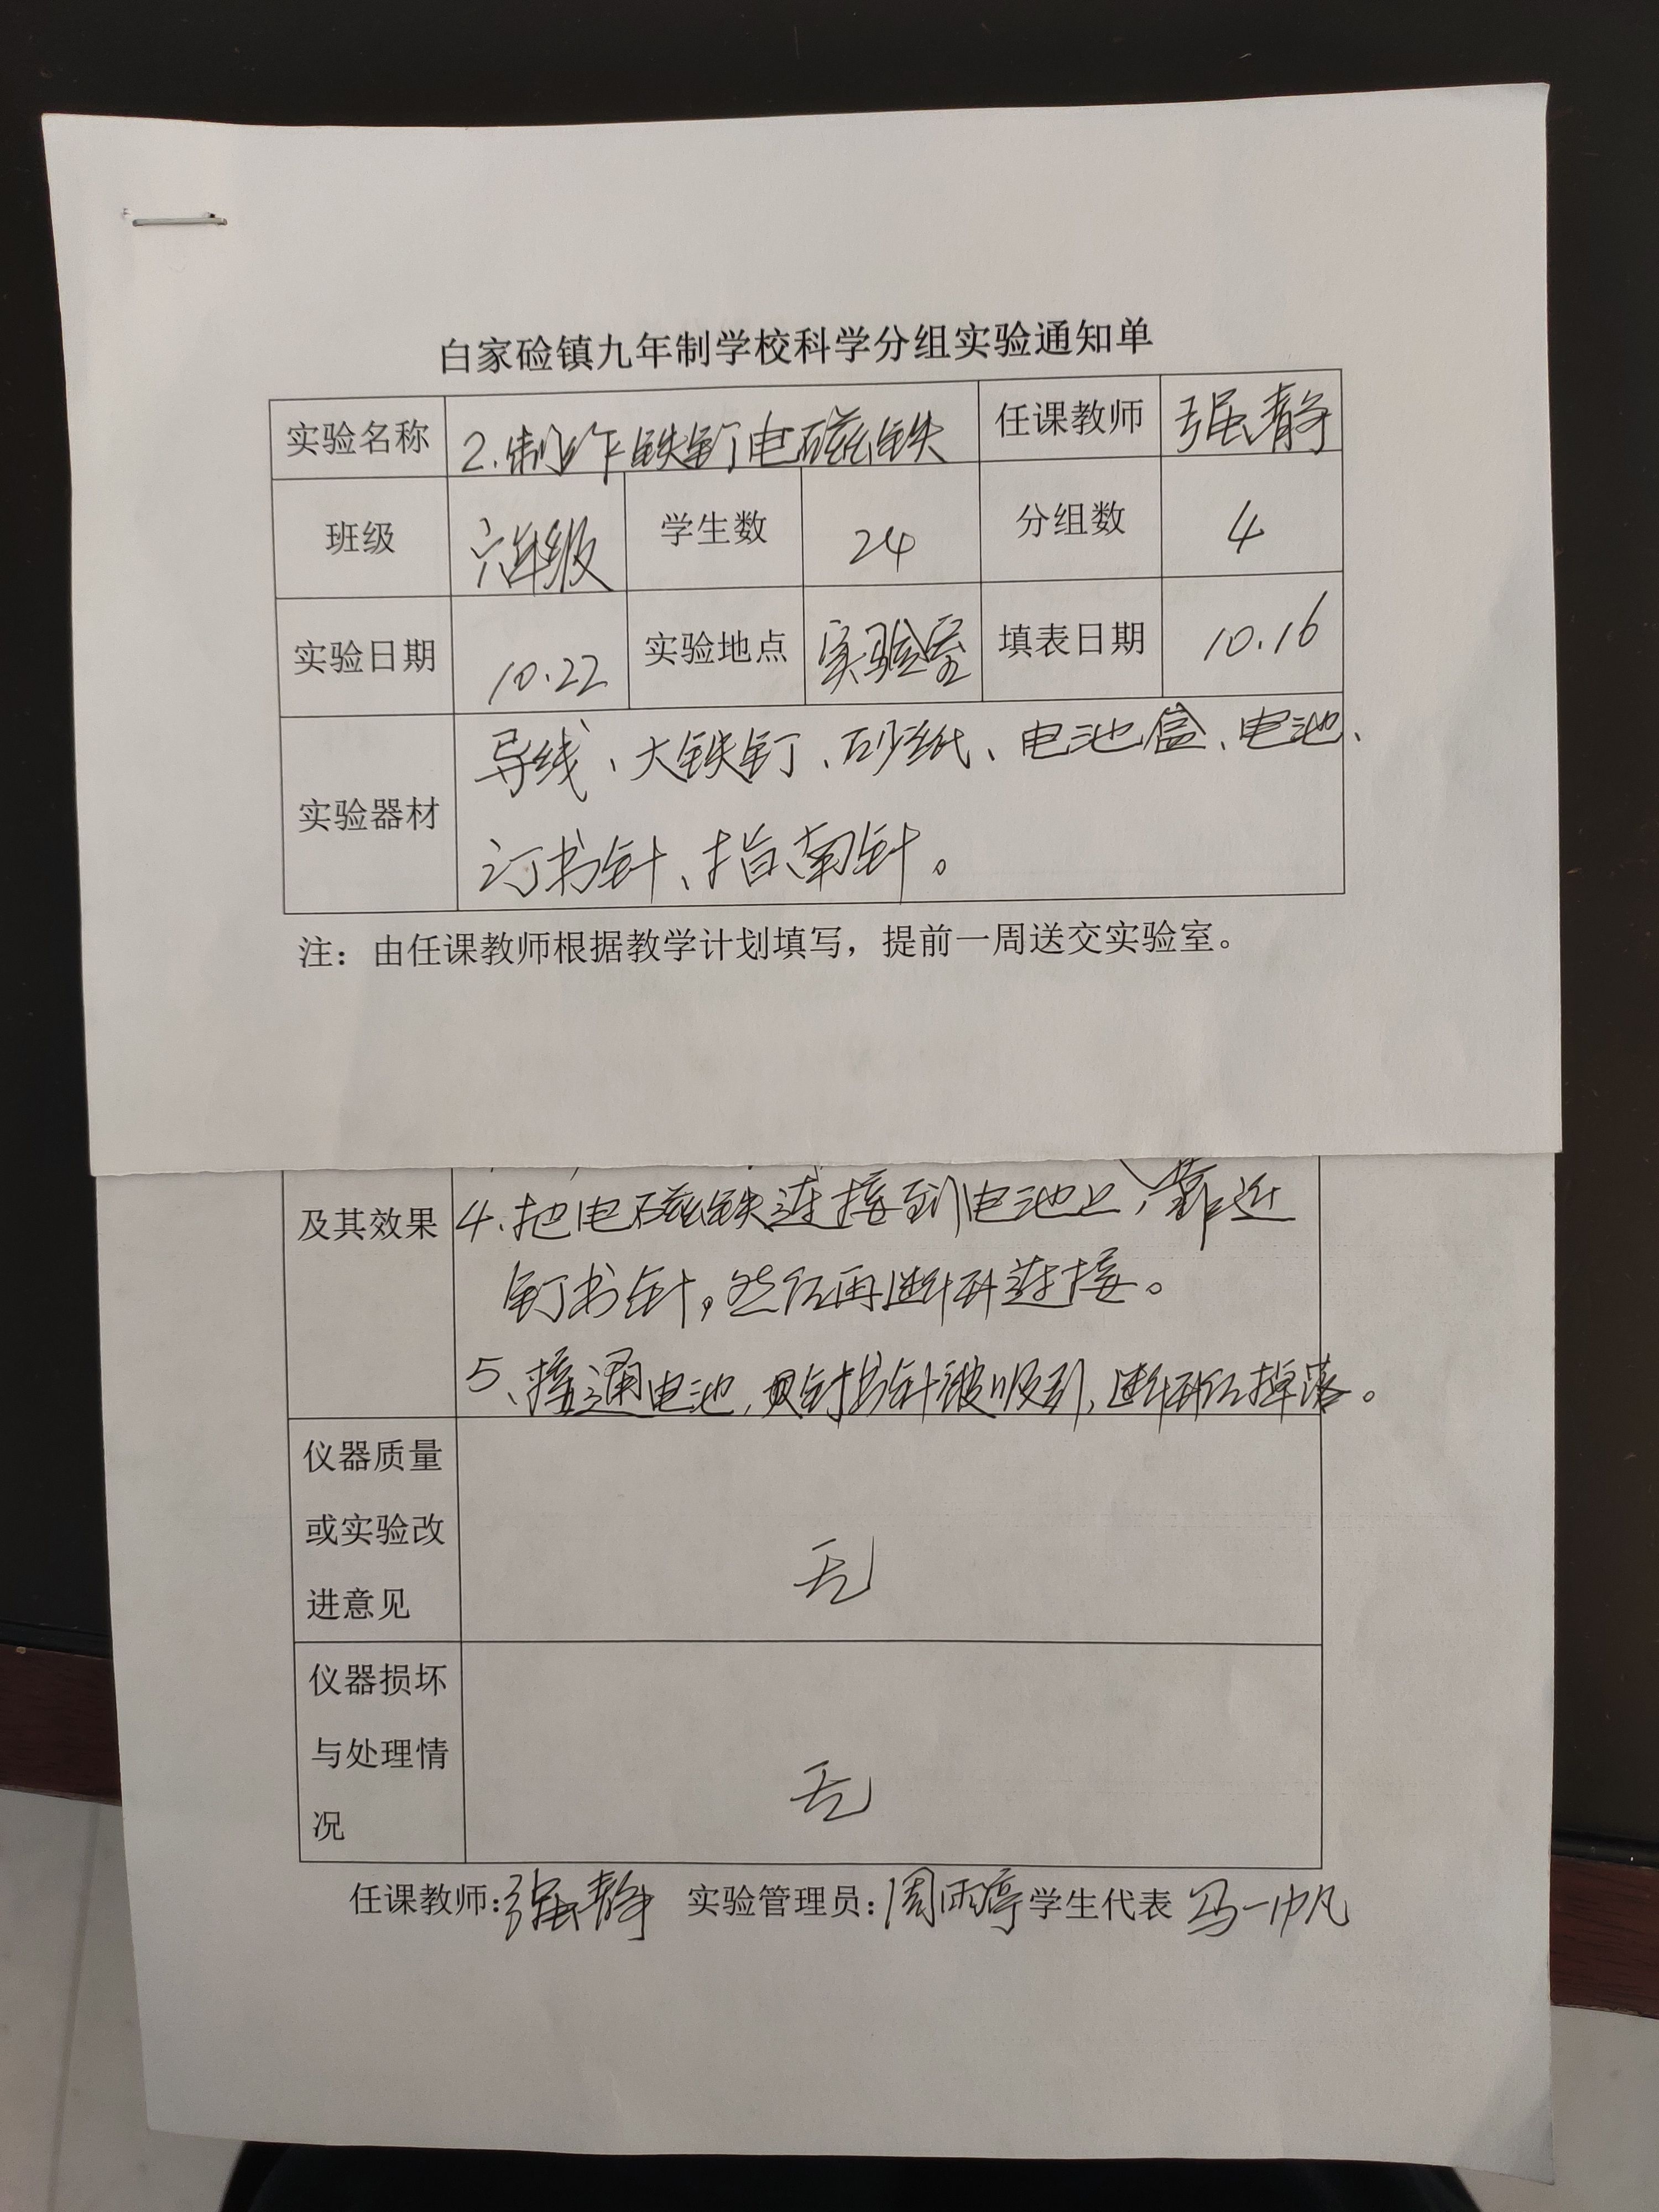 白家硷镇九年制学校科学分组实验通知单
实验名称 2.制作铁钉电磁铁 任课教师 强静
班级 六年级 学生数 24 分组数 4
实验日期 10.22 实验地点 实验室 填表日期 10.16
实验器材 导线、大铁钉、砂纸、电池盒、电池、
订书针、指南针。
注：由任课教师根据教学计划填写，提前一周送交实验室。
及其效果 4.把电磁铁连接到电池上，靠近
钉书针，然后再断开连接。
5、接通电池，则钉书针被吸引，断开后掉落。
仪器质量
或实验改
进意见
无
仪器损坏
与处理情
况
无
任课教师:强静 实验管理员:周雨婷 学生代表 冯一帆